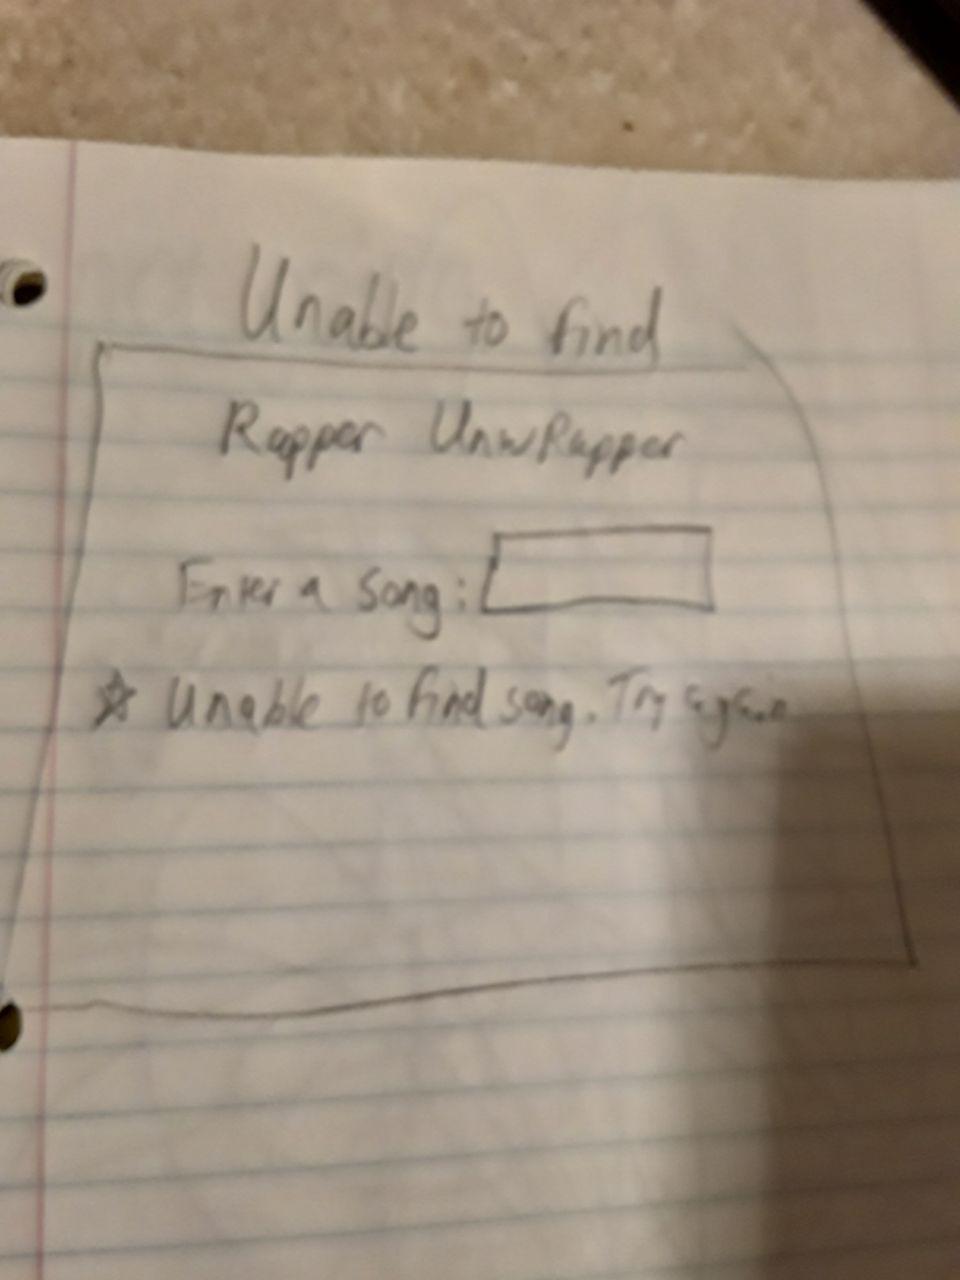 Unable to find
Rapper UnwRapper
Enter a song:
☆ Unable to find song. Try again